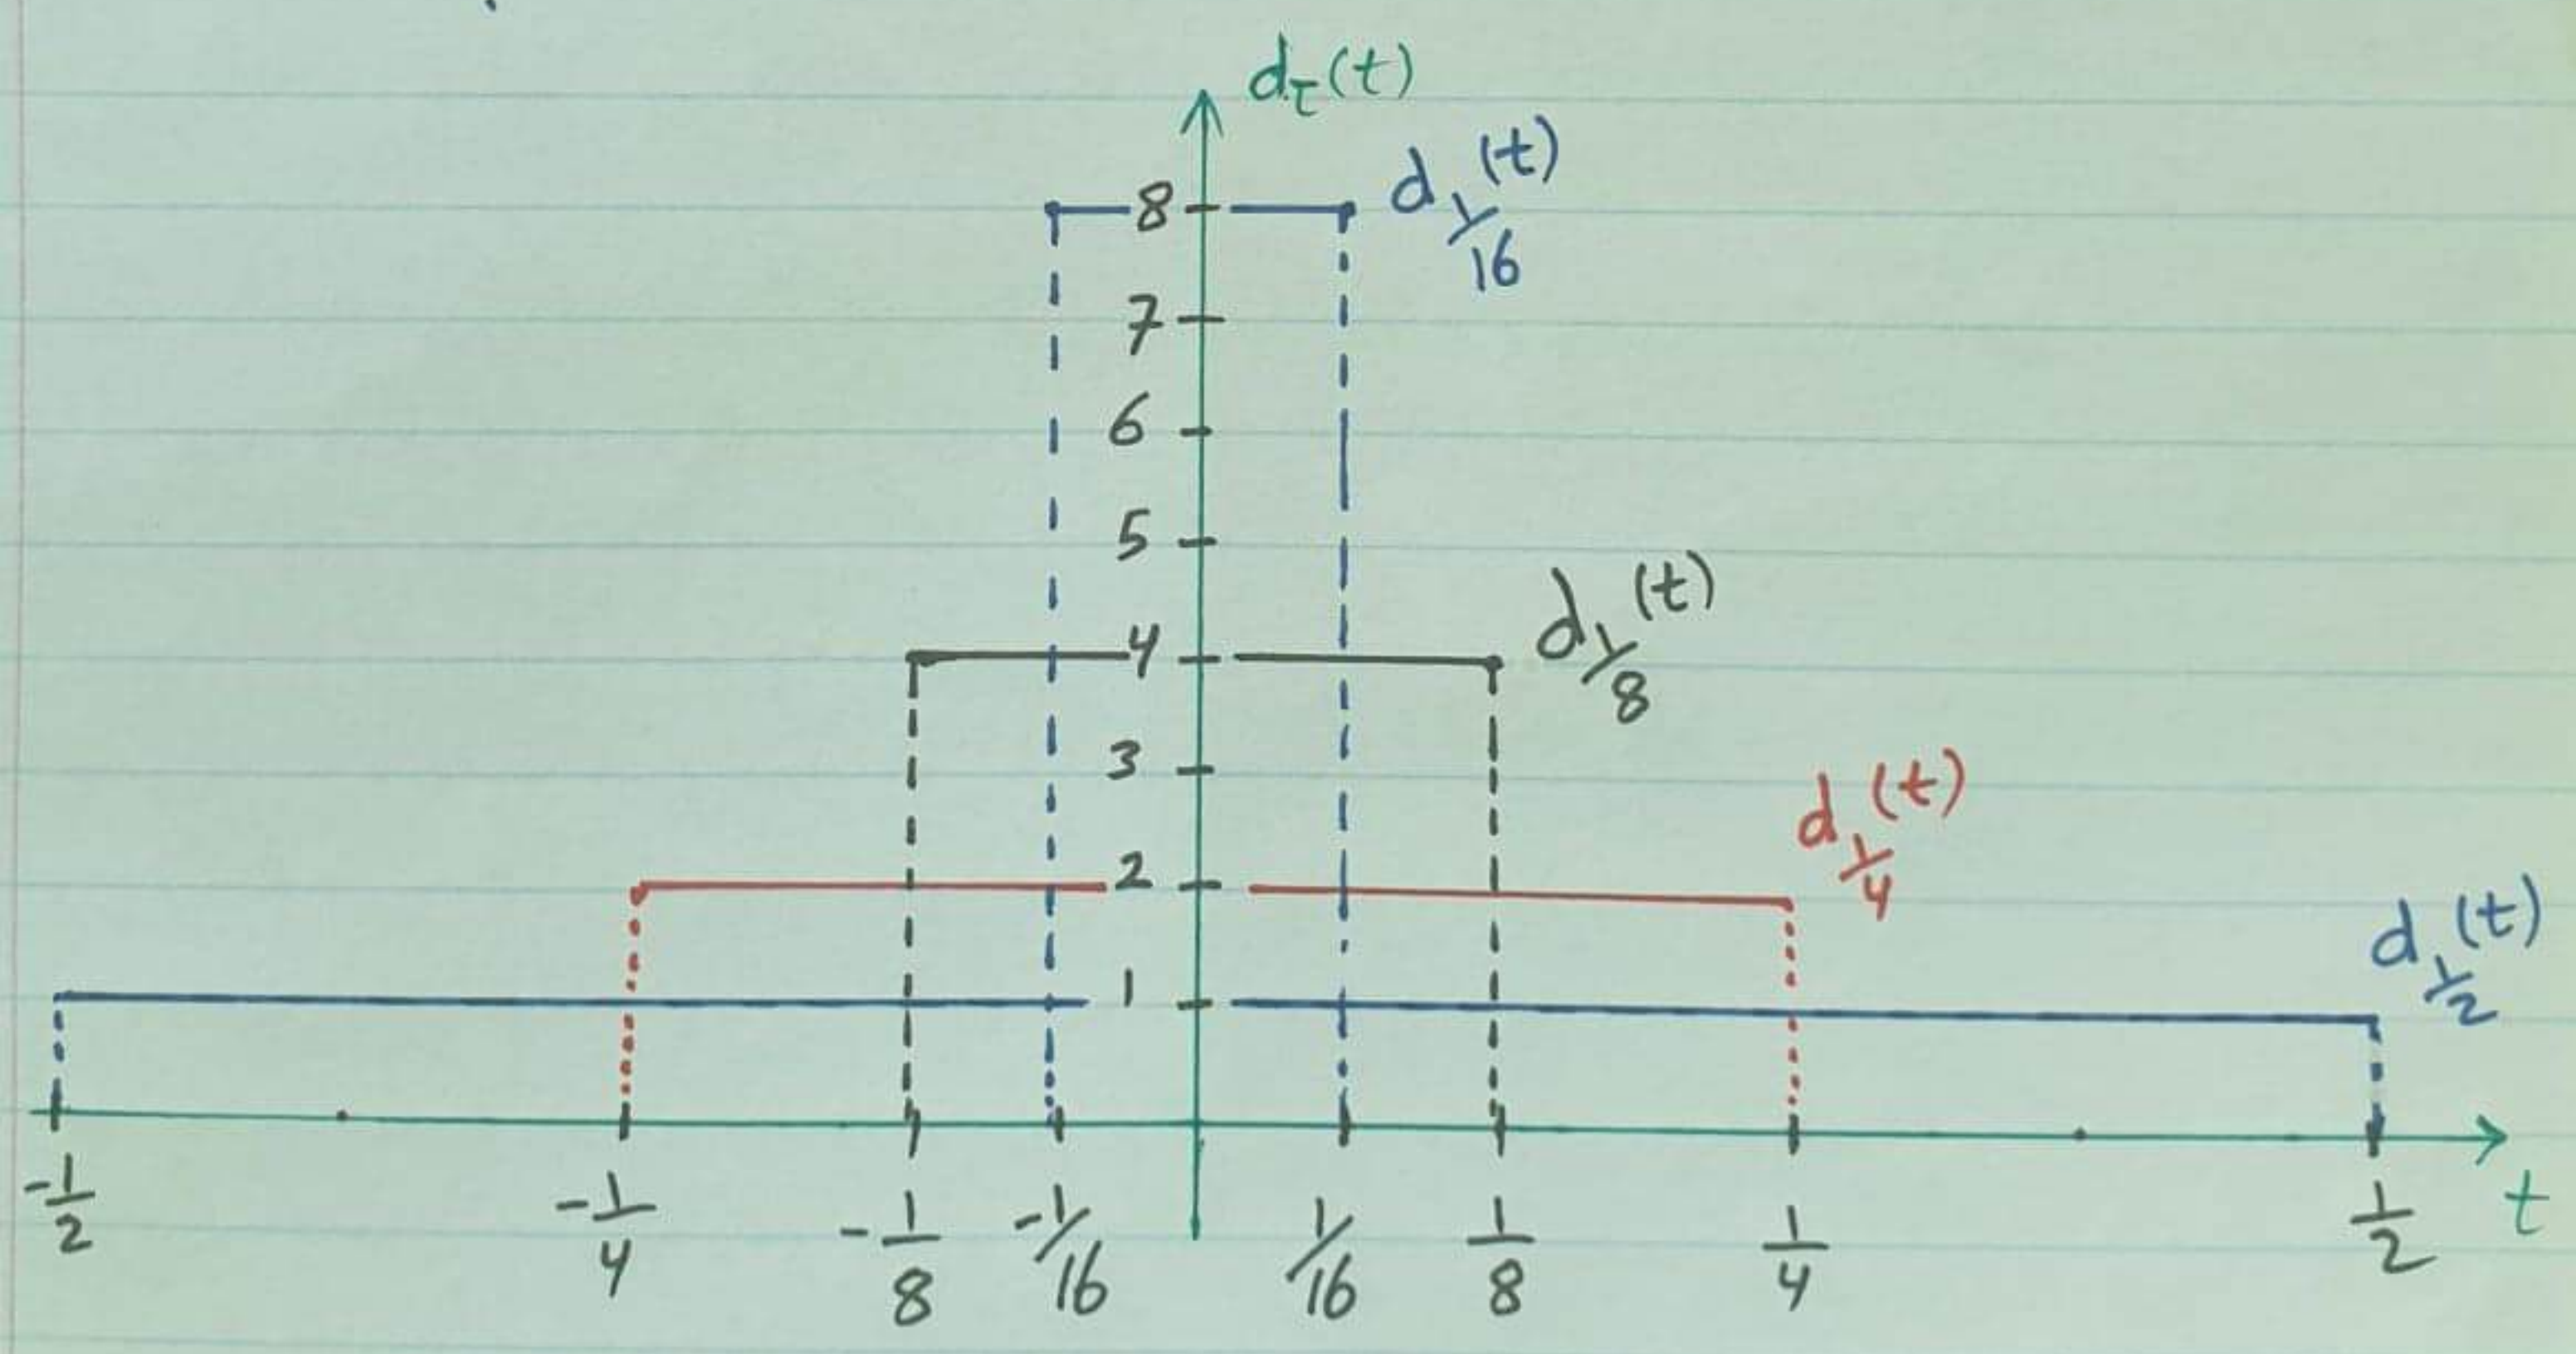 d_τ(t)
d_1/16(t)
8
7
6
5
d_1/8(t)
4
3
d_1/4(t)
2
d_1/2(t)
1
-1/2 -1/4 -1/8 -1/16 1/16 1/8 1/4 1/2 t